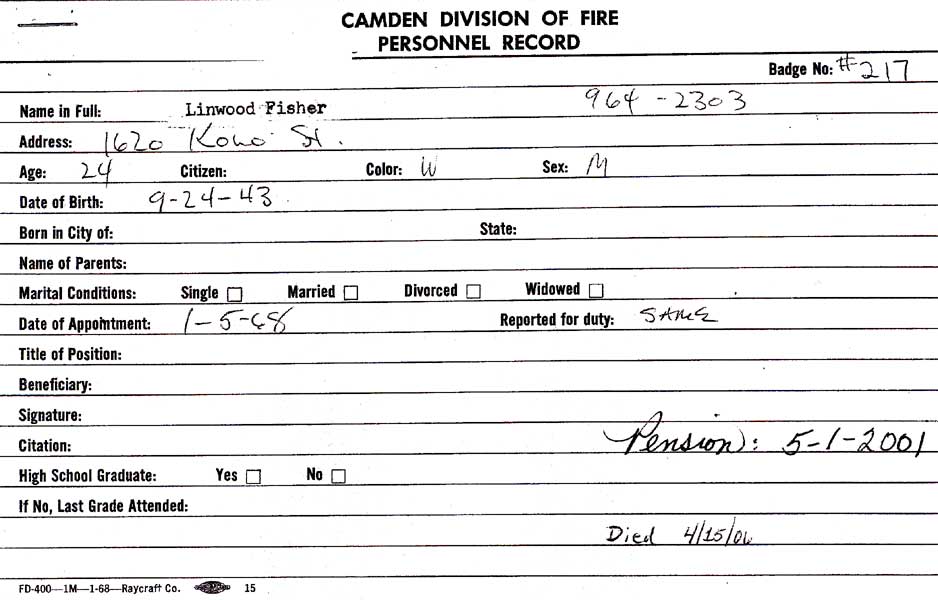 CAMDEN DIVISION OF FIRE
PERSONNEL RECORD
Badge No: #217
Name in Full: Linwood Fisher 964-2303
Address: 1620 St.
Age: 24 Citizen: Color: W Sex: M
Date of Birth: 9-24-43
Born in City of: State:
Name of Parents:
Marital Conditions: Single Married Divorced Widowed
Date of Appointment: 1-5-68 Reported for duty: SAME
Title of Position:
Beneficiary:
Signature:
Citation: Pension: 5-1-2001
High School Graduate: Yes No
If No, Last Grade Attended:
Died 4/15/06
FD-400—1M—1-68—Raycraft Co. 15